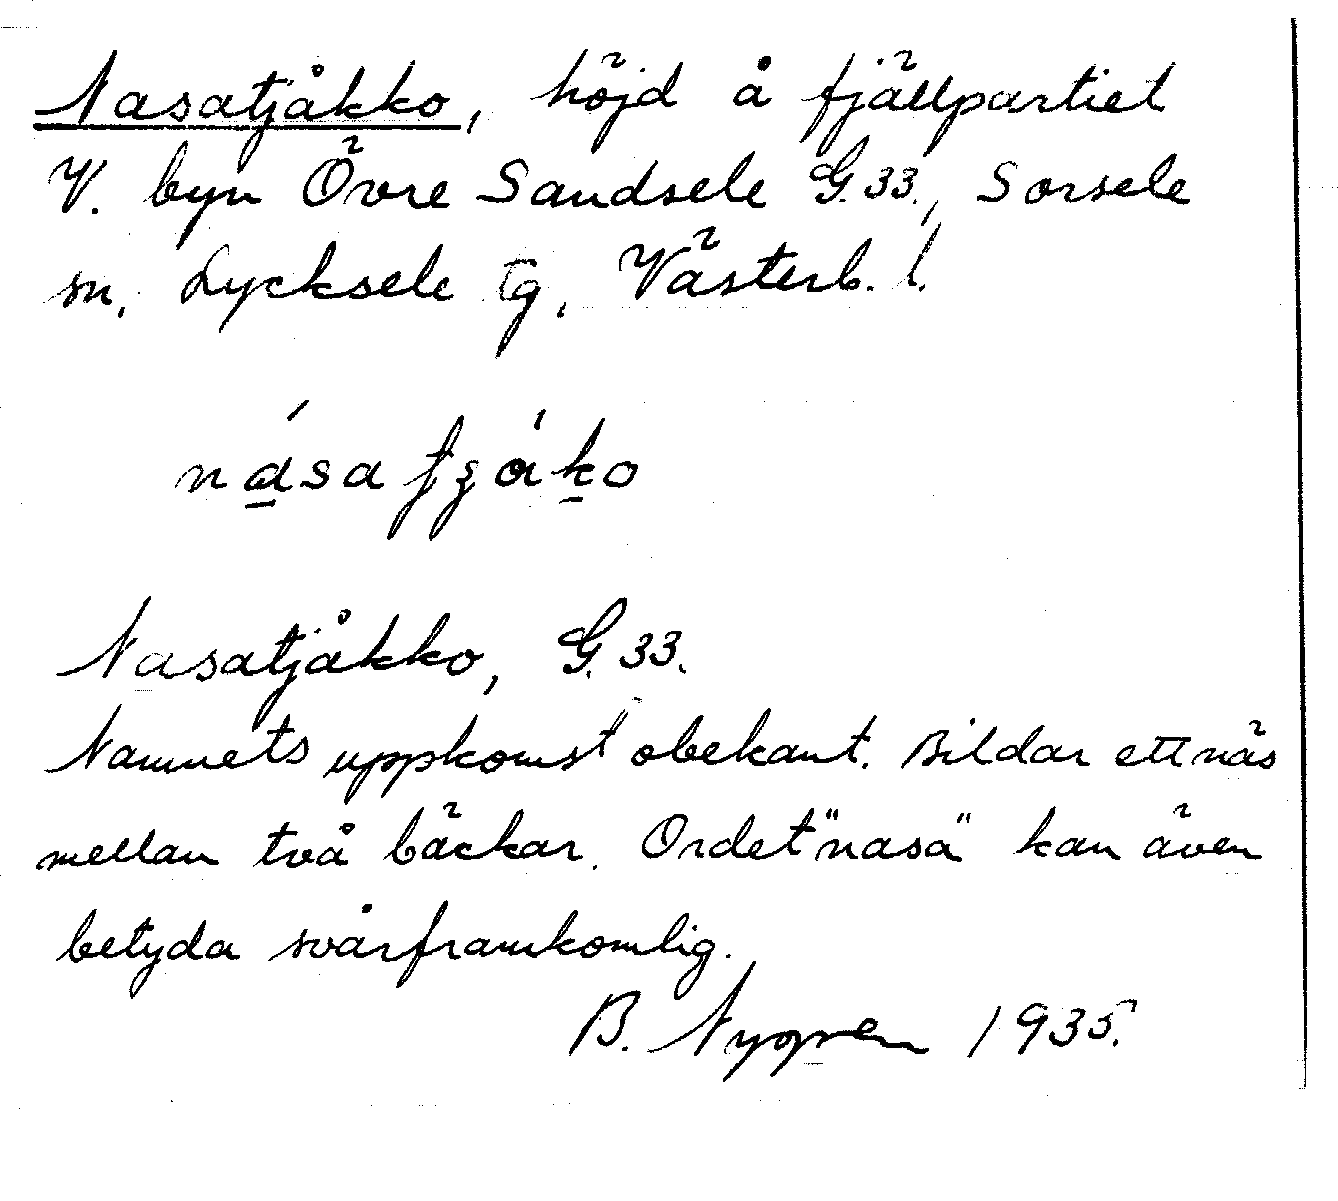 Nasatjåkko, höjd å fjällpartiet
V. byn Övre Sandsele G.33., Sorsele
sn. Lycksele tg, Västerb. l.
násatʒåko
Nasatjåkko, G.33.
Namnets uppkomst obekant. Bildar ett näs
mellan två bäckar. Ordet "nasa" kan även
betyda svårframkomlig.
B. Nygren 1935.